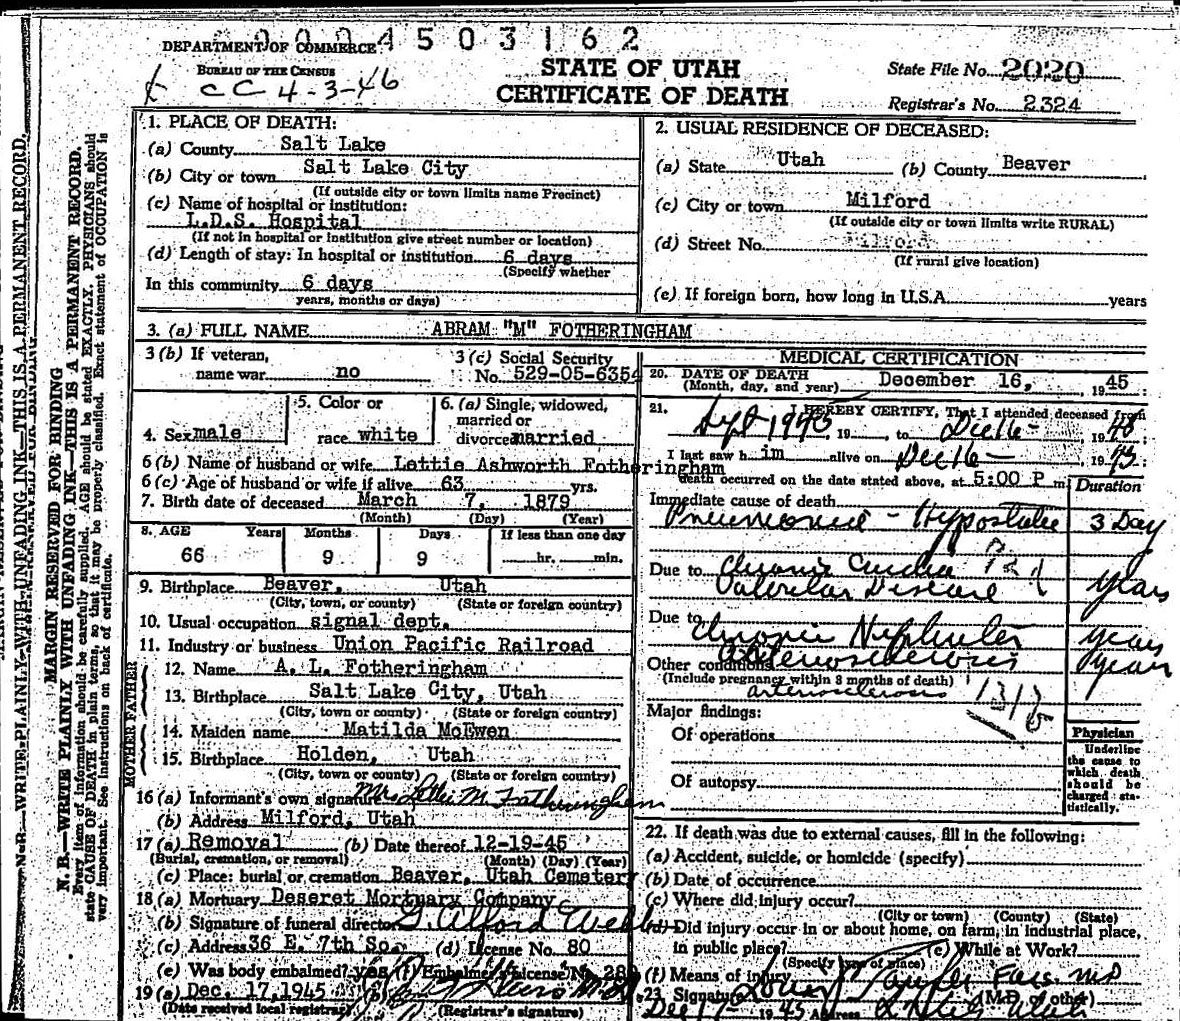 0004503162
DEPARTMENT OF COMMERCE
BUREAU OF THE CENSUS
CC 4-3-46
STATE OF UTAH
CERTIFICATE OF DEATH
State File No. 2020
Registrar's No. 2324
1. PLACE OF DEATH:
(a) County Salt Lake
(b) City or town Salt Lake City
(If outside city or town limits name Precinct)
(c) Name of hospital or institution:
L.D.S. Hospital
(If not in hospital or institution give street number or location)
(d) Length of stay: In hospital or institution 6 days
(Specify whether
In this community 6 days
years, months or days)
2. USUAL RESIDENCE OF DECEASED:
(a) State Utah (b) County Beaver
(c) City or town Milford
(If outside city or town limits write RURAL)
(d) Street No. Milford
(If rural give location)
(e) If foreign born, how long in U.S.A. years
3. (a) FULL NAME ABRAM "M" FOTHERINGHAM
3 (b) If veteran,
name war no
3 (c) Social Security
No. 529-05-6354
4. Sex male
5. Color or
race white
6. (a) Single, widowed,
married or
divorced married
6 (b) Name of husband or wife Lettie Ashworth Fotheringham
6 (c) Age of husband or wife if alive 63 yrs.
7. Birth date of deceased March 7, 1879
(Month) (Day) (Year)
8. AGE Years Months Days If less than one day
66 9 9 hr. min.
9. Birthplace Beaver, Utah
(City, town, or county) (State or foreign country)
10. Usual occupation signal dept.
11. Industry or business Union Pacific Railroad
FATHER
12. Name A. L. Fotheringham
13. Birthplace Salt Lake City, Utah
(City, town or county) (State or foreign country)
MOTHER
14. Maiden name Matilda McEwen
15. Birthplace Holden, Utah
(City, town or county) (State or foreign country)
16 (a) Informant's own signature Mrs Lettie M. Fotheringham
(b) Address Milford, Utah
17 (a) Removal (b) Date thereof 12-19-45
(Burial, cremation, or removal) (Month) (Day) (Year)
(c) Place: burial or cremation Beaver, Utah Cemetery
18 (a) Mortuary Deseret Mortuary Company
(b) Signature of funeral director Alford Webb
(c) Address 36 E. 7th So. (d) License No. 80
(e) Was body embalmed? yes (f) Embalmer's License No. 28
19 (a) Dec. 17, 1945 (b)
(Date received local registrar) (Registrar's signature)
MEDICAL CERTIFICATION
20. DATE OF DEATH
(Month, day, and year) December 16, 1945
21. I HEREBY CERTIFY, That I attended deceased from
Sept 1945, 19 , to Dec 16 - 1945
I last saw h im alive on Dec 16 - 1945:
death occurred on the date stated above, at 5:00 P m.
Duration
Immediate cause of death
Pneumonia - Hypostatic 3 Day
Due to Chronic Cardio
Valvular Disease years
Due to
Chronic Nephritis years
Other conditions Arteriosclerosis years
(Include pregnancy within 3 months of death)
arteriosclerosis
Major findings:
Of operations
Of autopsy
Physician
Underline
the cause to
which death
should be
charged sta-
tistically.
22. If death was due to external causes, fill in the following:
(a) Accident, suicide, or homicide (specify)
(b) Date of occurrence
(c) Where did injury occur?
(City or town) (County) (State)
(d) Did injury occur in or about home, on farm, in industrial place,
in public place? (e) While at Work?
(Specify type of place)
(f) Means of injury
23. Signature (M.D. or other)
Dec 17 1945 Address
MARGIN RESERVED FOR BINDING
N. B.—WRITE PLAINLY WITH UNFADING INK—THIS IS A PERMANENT RECORD.
Every item of information should be carefully supplied. AGE should be stated EXACTLY. PHYSICIANS should
state CAUSE OF DEATH in plain terms, so that it may be properly classified. Exact statement of OCCUPATION is
very important. See instructions on back of certificate.
N. B.—WRITE PLAINLY WITH UNFADING INK—THIS IS A PERMANENT RECORD.